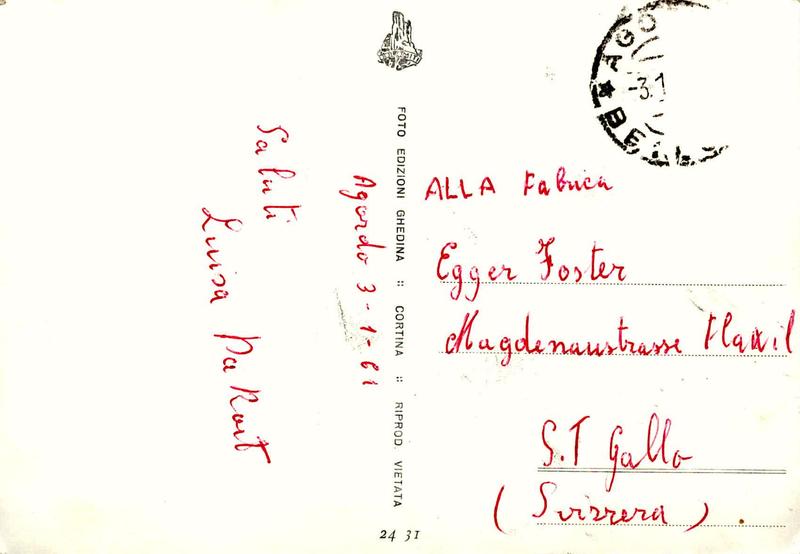 Saluti
Luisa Da Roit
Agordo 3-1-61
FOTO EDIZIONI GHEDINA :: CORTINA :: RIPROD. VIETATA
AGO
-3.1
* BELL
ALLA Fabrica
Egger Foster
Magdenaustrasse Flawil
S.T Gallo
(Svizzera).
24 31